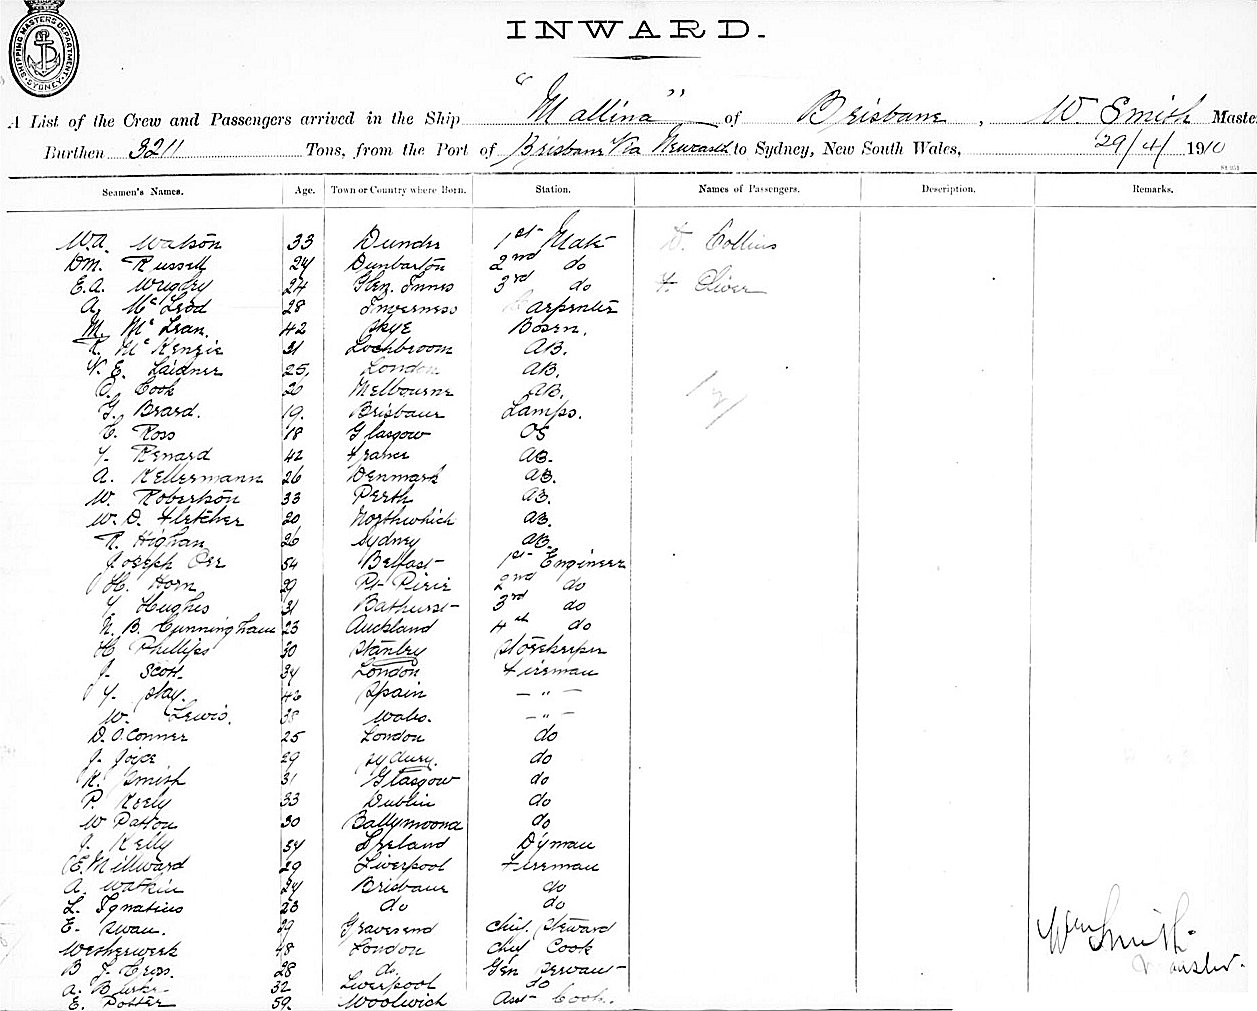 SHIPPING MASTERS DEPARTMENT. SYDNEY.
INWARD.
A List of the Crew and Passengers arrived in the Ship "Mallina" of Brisbane, W. Smith Maste
Burthen 3211 Tons, from the Port of Brisbane Via Newcastle to Sydney, New South Wales, 29/4/1910
Seamen's Names. Age. Town or Country where Born. Station. Names of Passengers. Description. Remarks.
W.A. Watson 33 Dundee 1st Mate D. Collins
DM. Russell 24 Dunbarton 2nd do
E.A. Wrigley 24 Glen Innes 3rd do F. Oliver
A. McLeod 28 Inverness Carpenter
M. McLean. 42 Skye Bosen.
R. McKenzie 21 Lochbroom AB.
N. E. Laidner 25. London AB.
O. Cook 26 Melbourne AB.
G. Beard. 19. Brisbane Lamps.
C. Ross 18 Glasgow OS
Y. Renard 42 France AB.
A. Kellermann 26 Denmark AB.
W. Robertson 33 Perth AB.
W. D. Fletcher 20 Northwhich AB.
R. Highan 26 Sydney AB.
Joseph Orr 54 Belfast 1st Engineer
H. Horn 29 Pt Pirie 2nd do
Y Hughes 31 Bathurst 3rd do
N. B. Cunningham 23 Auckland 4th do
H Phillips 30 Stanley Storekeeper
J. Scott 34 London Fireman
Y. Slay. 42 Spain - " -
W. Lewis. 38 Wales. - " -
D. O.Conner 25 London do
J. Joice 29 Sydney. do
R. Smith 31 Glasgow do
P. Keely 33 Dublin do
W Patton 30 Ballymoona do
J. Kelly 54 Ireland Dyman
E. Millward 29 Liverpool Fireman
A. Watkin 24 Brisbane do
L. Ignatius 23 do do
E. Swan. 39 Gravesend Chief Steward
Westerwerk 48 London Chef Cook
B J. Cross. 28 do Gen Servant
A. Burke 32 Liverpool do
E. Potter 59. Woolwich Asst Cook.
Wm Smith.
Master.